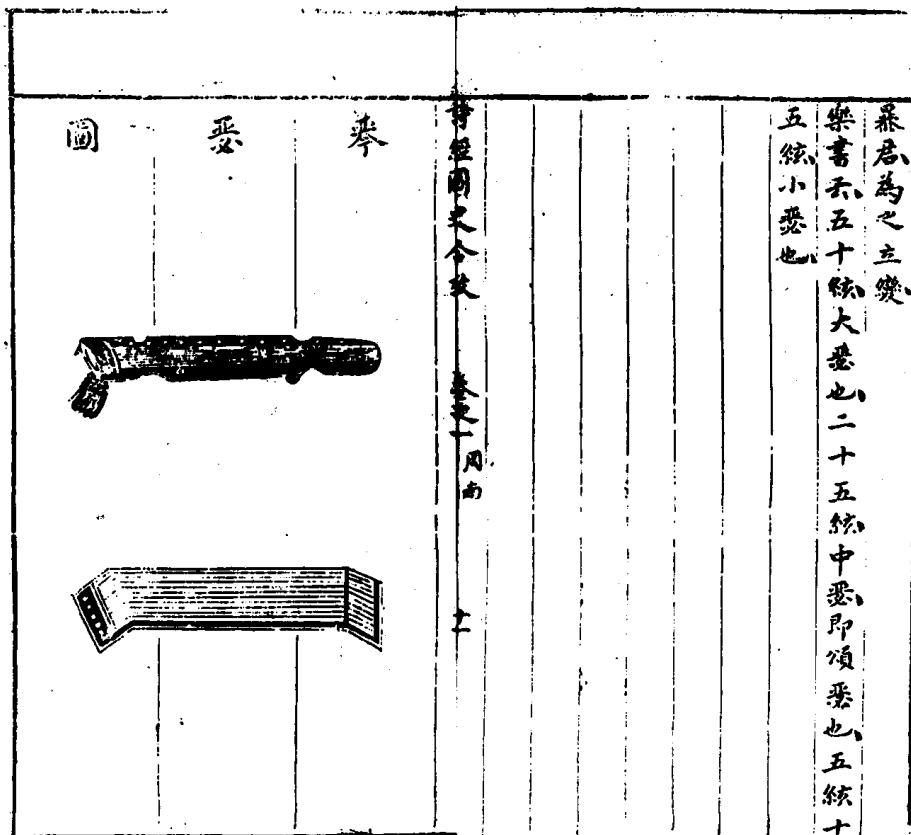 暴君為之立變、
樂書云、五十絃、大瑟也、二十五絃、中瑟、即頌瑟也、五絃十
五絃、小瑟也、
詩經圖史合攷 卷之一 周南 十一
琴瑟圖